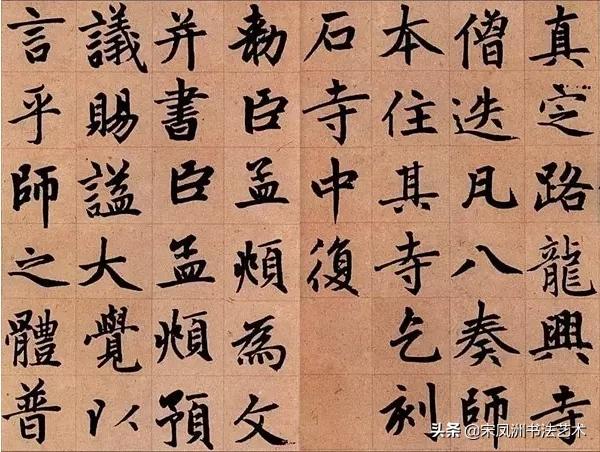 真定路龍興寺
僧迭凡八奏師
本住其寺乞刻
石寺中復
勅臣孟頫為文
并書臣孟頫預
議賜謚大覺以
言乎師之體普
头条 @宋凤洲书法艺术